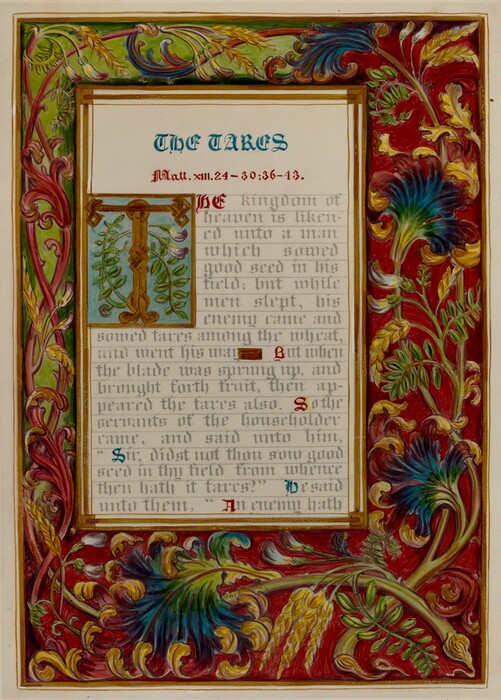 THE TARES
Matt. xiii. 24–30: 36–43.
THE kingdom of
heaven is liken-
ed unto a man
which sowed
good seed in his
field: but while
men slept, his
enemy came and
sowed tares among the wheat,
and went his way But when
the blade was sprung up, and
brought forth fruit, then ap-
peared the tares also. So the
servants of the householder
came, and said unto him,
“Sir, didst not thou sow good
seed in thy field from whence
then hath it tares?” He said
unto them, “An enemy hath